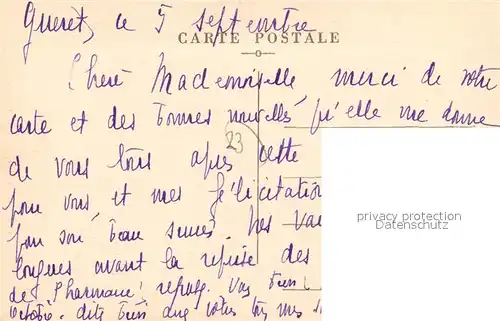 Guéret, ce 5 septembre
CARTE POSTALE
Chère Mademoiselle, merci de votre
carte et des bonnes nouvelles qu'elle me donne
23
de vous tous après cette
pour vous, et mes félicitation
pour son beau succès. Mes vac
longues avant la reprise des
de Pharmacie! repos. Vos
dite bien que votre
privacy protection
Datenschutz